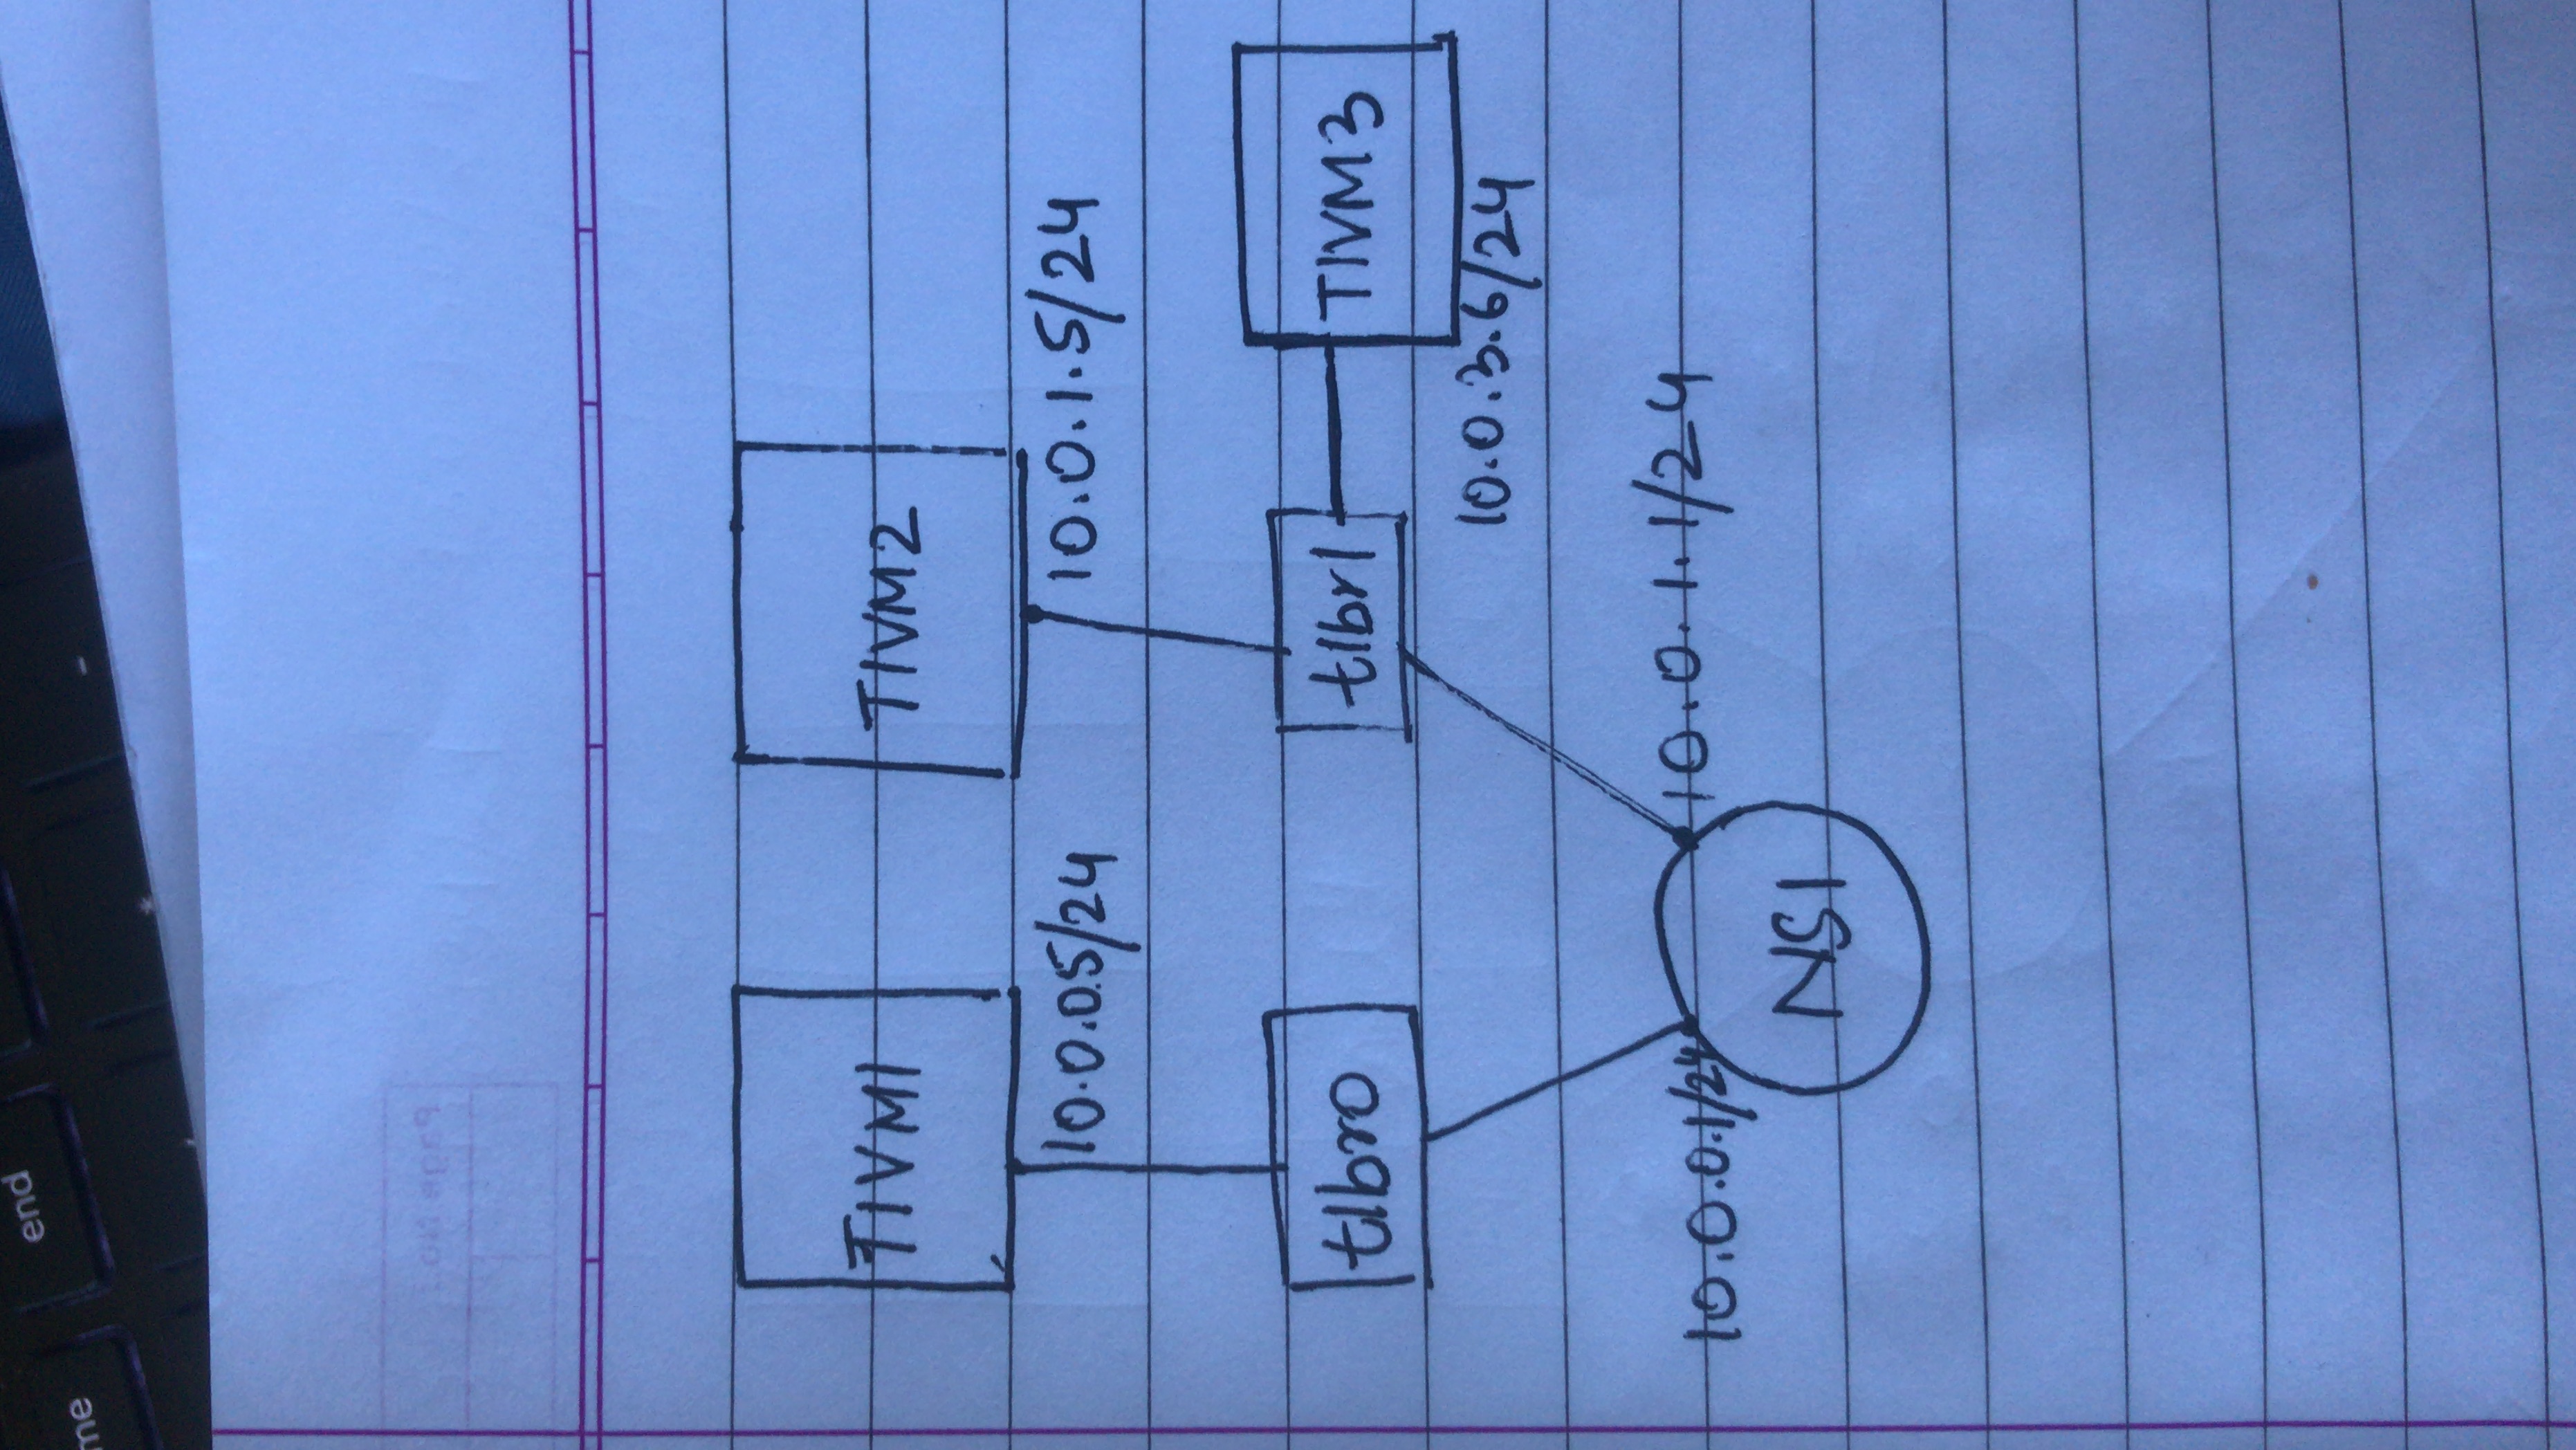 end
me
-
*
Page No.:
T1VM1
T1VM2
10.0.0.5/24
10.0.1.5/24
t1br0
t1br1
T1VM3
10.0.3.6/24
10.0.0.1/24
10.0.1.1/24
NS1